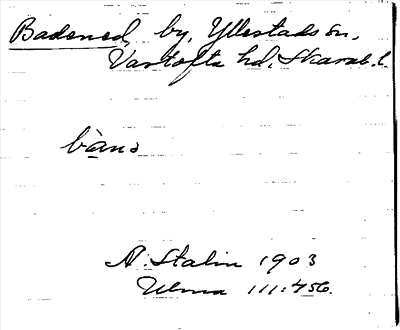 Badened, by, Yllestads sn,
Vartofta hd, Skarab. l.
bànə
A. Stalin 1903
Ulma 111:456.